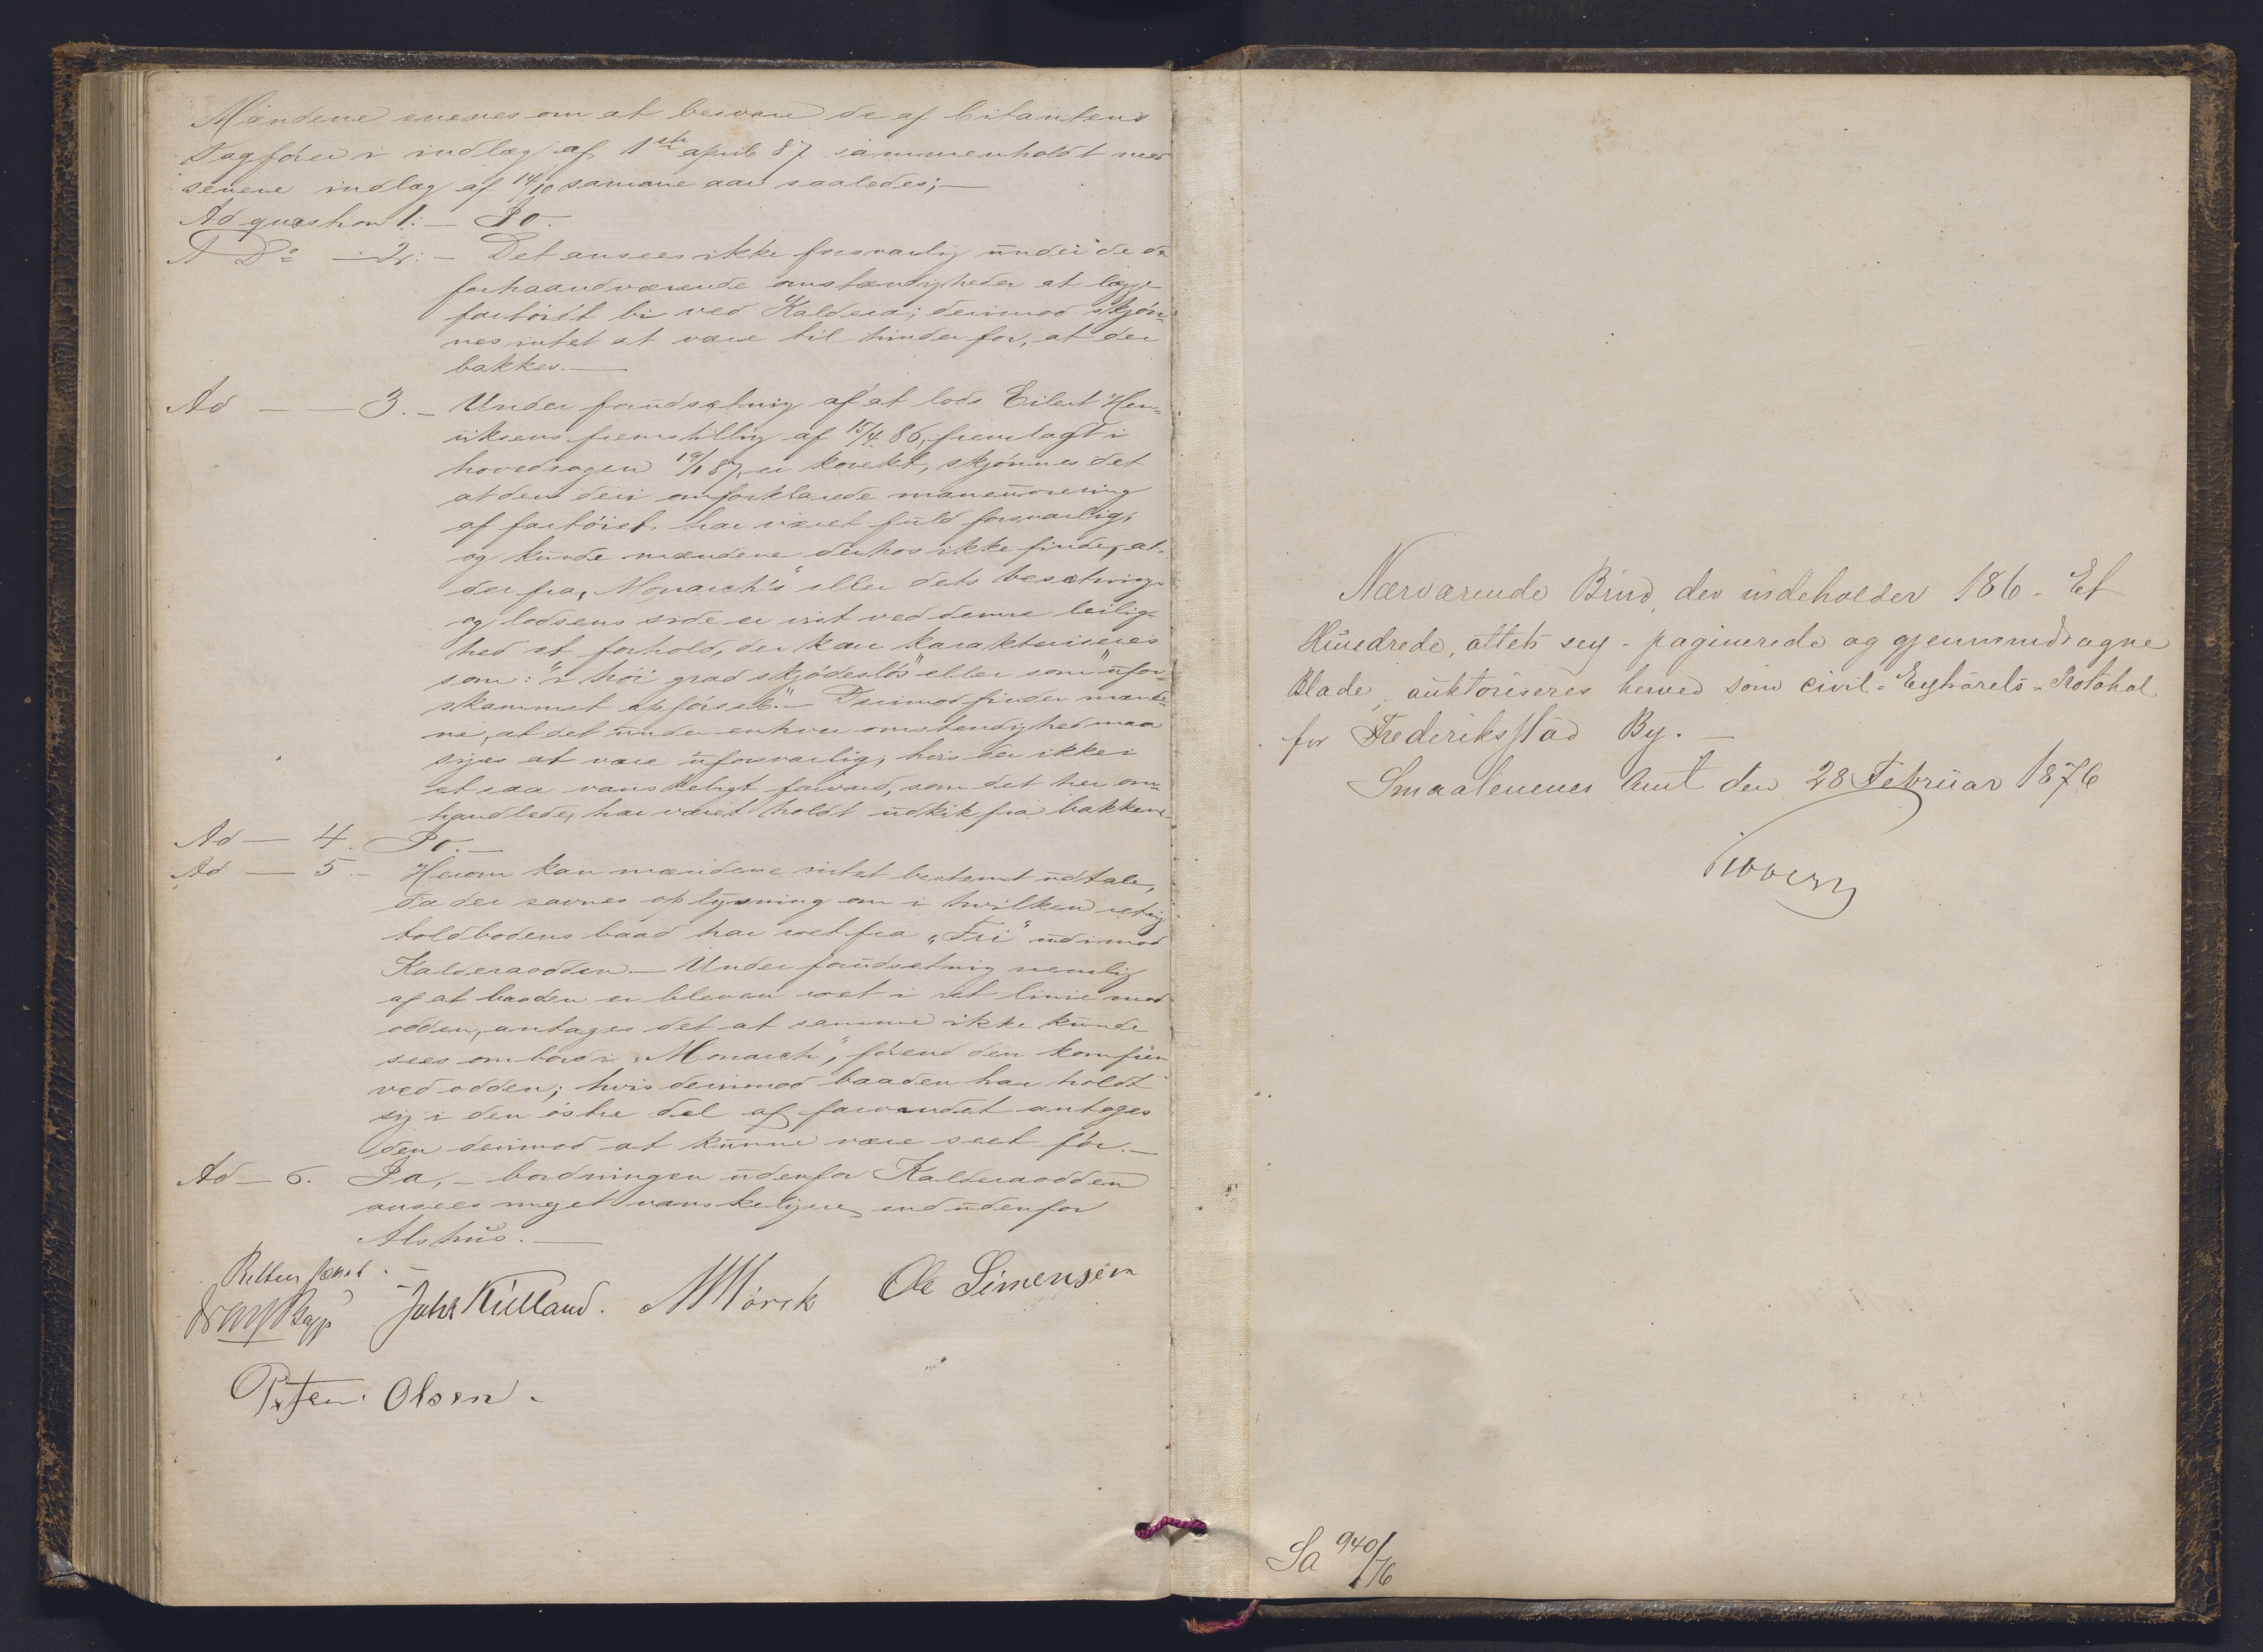 Mændene enenes om at besvare de af Citantens
Sagfører i indlæg af 1ste april 87 sammenholdt med
senere indlæg af 14/10 samme aar saaledes; —
Ad question 1: — Jo.
A Do — 2: — Det ansees ikke forsvarlig under de da
forhaandværende omstændigheder at lægge
fartöiet bi ved Kaldera; derimod skjön-
nes intet at være til hinder for, at der
bakkes. —
Ad — — 3. — Under forudsætning af at lods Eilert Hen-
riksens fremstilling af 15/4 86, fremlagt i
hovedsagen 19/1 87, er korekt, skjönnes det
at den deri omforklarede maneuvrering
af fartöiet har været fuld forsvarlig,
og kunde mændene derhos ikke finde, at
der fra "Monarch's" eller dets besætnings
og lodsens side er vist ved denne leilig-
hed et forhold, der kan karakteriseres
som: "i höi grad skjödeslös" eller som "ufor-
skammet opförsel". — Derimod finder mænde-
ne, at det under enhver omstendighed maa
siges at være uforsvarlig, hvis der ikke i
et saa vanskeligt farvand, som det her om-
handlede, har været holdt udkik fra bakken.
Ad — 4. Jo. —
Ad — 5. — Herom kan mændene intet bestemt udtale,
da der savnes oplysning om i hvilken retnig
toldbodens baad har roet fra "Fri" udimod
Kalderaodden. — Under forudsetnig nemlig
af at baaden er bleven roet i ret linie mod
odden, antages det at samme ikke kunde
sees ombord i "Monarch", förend den kom frem
ved odden; hvis derimod baaden har holdt
sig i den östre del af farvandet antages
den derimod at kunne være seet för. —
Ad — 6. Ja, — bordningen udenfor Kalderaodden
ansees meget vanskeligere end udenfor
Alshus. —
Retten hævet. —
Bagge Johs Kielland. M Mörck Ole Simensen
Petter Olsen.
Nærværende Bind, der indeholder 186 - Et
Hundrede, ottets sex - paginerede og gjennemdragne
Blade, auktoriseres herved som civil-Extrarets-Protokol
for Frederiksstad By. —
Smaalenenes Amt den 28 Februar 1876
Sa 940/76